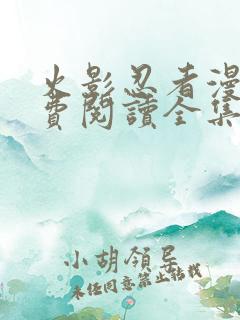 火影忍者漫
費閱讀全集
小胡領导
未任同意禁止转载